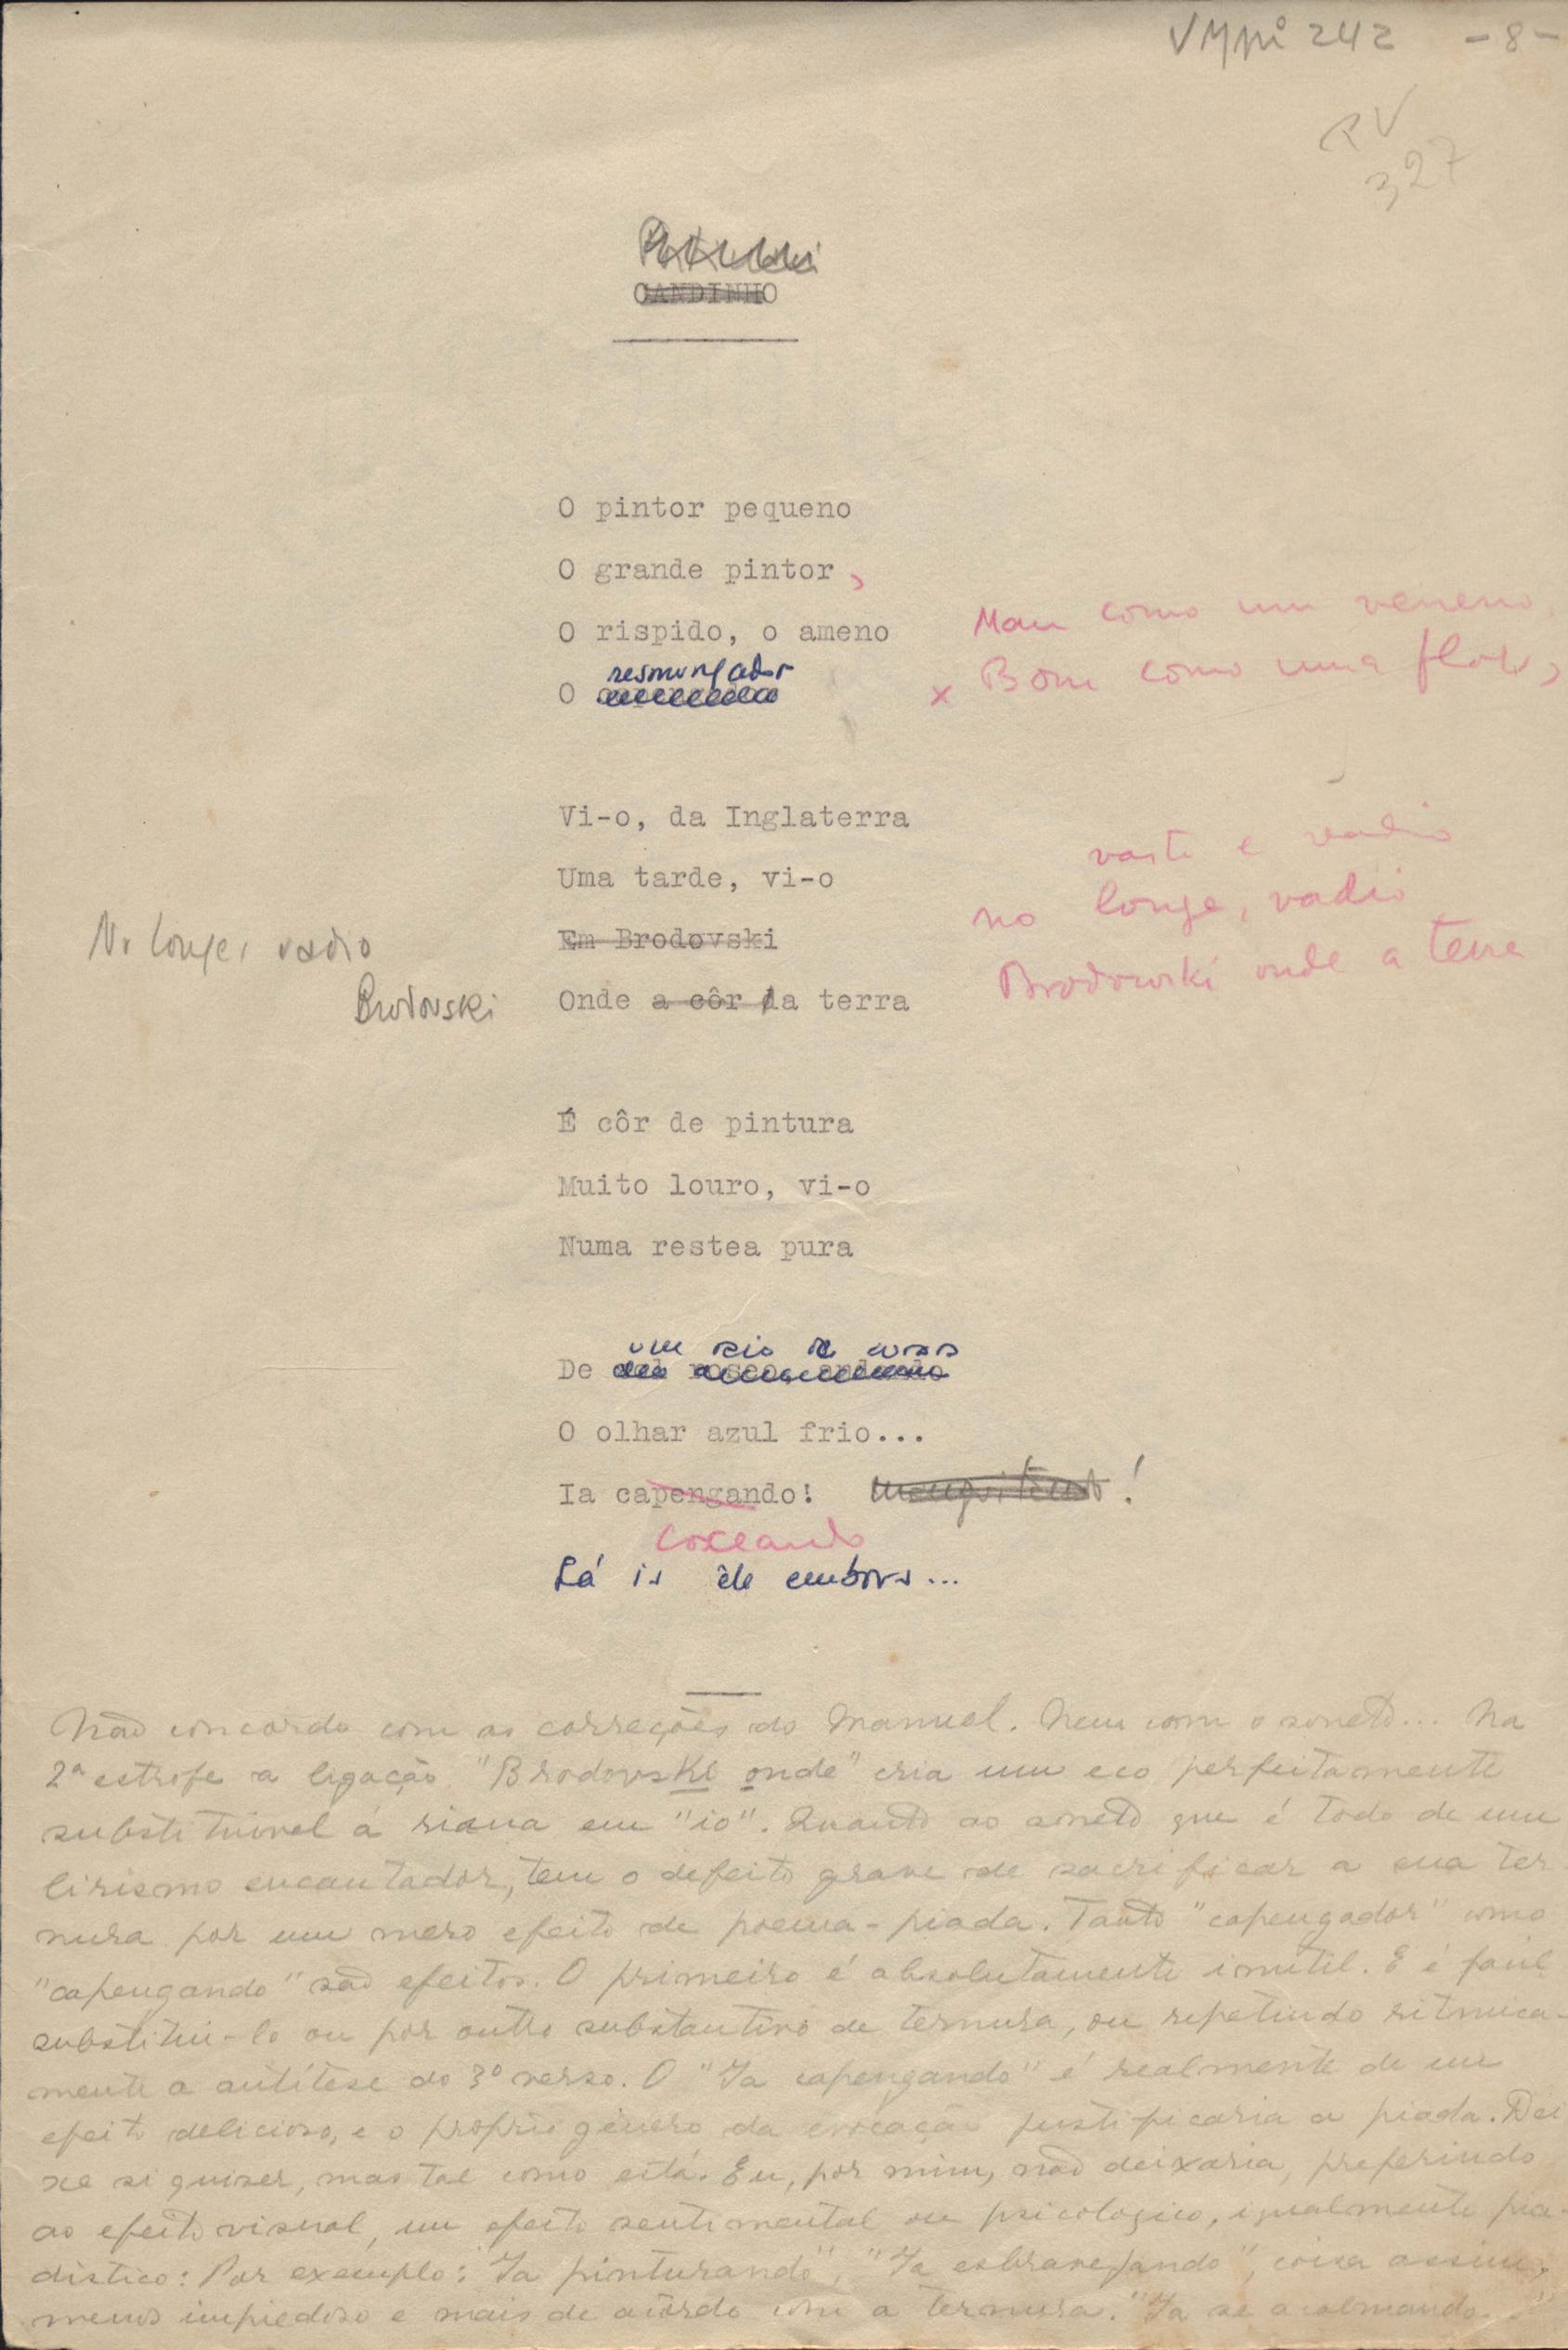 VMpi 242 -8-
RV
327
CANDINHO
O pintor pequeno
O grande pintor,
O rispido, o ameno
Mau como um veneno
resmungador
O
x Bom como uma flor,
Vi-o, da Inglaterra
vasto e vadio
Uma tarde, vi-o
no longe, vadio
No longe, vadio
Em Brodovski
Brodowski onde a terra
Brodovski
Onde a côr da terra
É côr de pintura
Muito louro, vi-o
Numa restea pura
um raio de
De
O olhar azul frio...
Ia capengando! !
coxeando
Lá ia êle embora...
Não concordo com as correções do Manuel. Nem com o soneto... Na
2ª estrofe a ligação "Brodovski onde" cria um eco perfeitamente
substituivel á rima em "io". Quanto ao soneto que é todo de um
lirismo encantador, tem o defeito grave de sacrificar a sua ter
nura por um mero efeito de poema-piada. Tanto "capengador" como
"capengando" são efeitos. O primeiro é absolutamente inutil. E é facil
substitui-lo ou por outro substantivo de ternura, ou repetindo ritmica-
mente a antítese do 3º verso. O "Ia capengando" é realmente de um
efeito delicioso, e o proprio gênero da evocação justificaria a piada. Dei
xe si quiser, mas tal como está. Eu, por mim, não deixaria, preferindo
ao efeito visual, um efeito sentimental ou psicologico, igualmente pia-
distico: Por exemplo: "Ia pinturando", "Ia esbravejando", coisa assim,
menos impiedoso e mais de acôrdo com a ternura. "Ia se acalmando..."